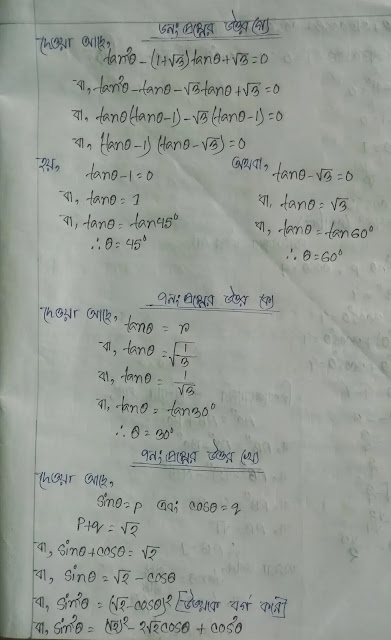 ৬নং প্রশ্নের উত্তর (গ)
দেওয়া আছে,
tan²θ - (1+√3)tanθ + √3 = 0
বা, tan²θ - tanθ - √3tanθ + √3 = 0
বা, tanθ(tanθ-1) - √3(tanθ-1) = 0
বা, (tanθ-1) (tanθ-√3) = 0
হয়, tanθ-1 = 0 অথবা, tanθ-√3 = 0
বা, tanθ = 1 বা, tanθ = √3
বা, tanθ = tan45° বা, tanθ = tan60°
∴ θ = 45° ∴ θ = 60°
৭নং প্রশ্নের উত্তর (ক)
দেওয়া আছে,
tanθ = p
বা, tanθ = √(1/3)
বা, tanθ = 1/√3
বা, tanθ = tan30°
∴ θ = 30°
৭নং প্রশ্নের উত্তর (খ)
দেওয়া আছে,
sinθ = p এবং cosθ = q
p+q = √2
বা, sinθ + cosθ = √2
বা, sinθ = √2 - cosθ
বা, sin²θ = (√2 - cosθ)² [উভয়কে বর্গ করে]
বা, sin²θ = (√2)² - 2√2cosθ + cos²θ